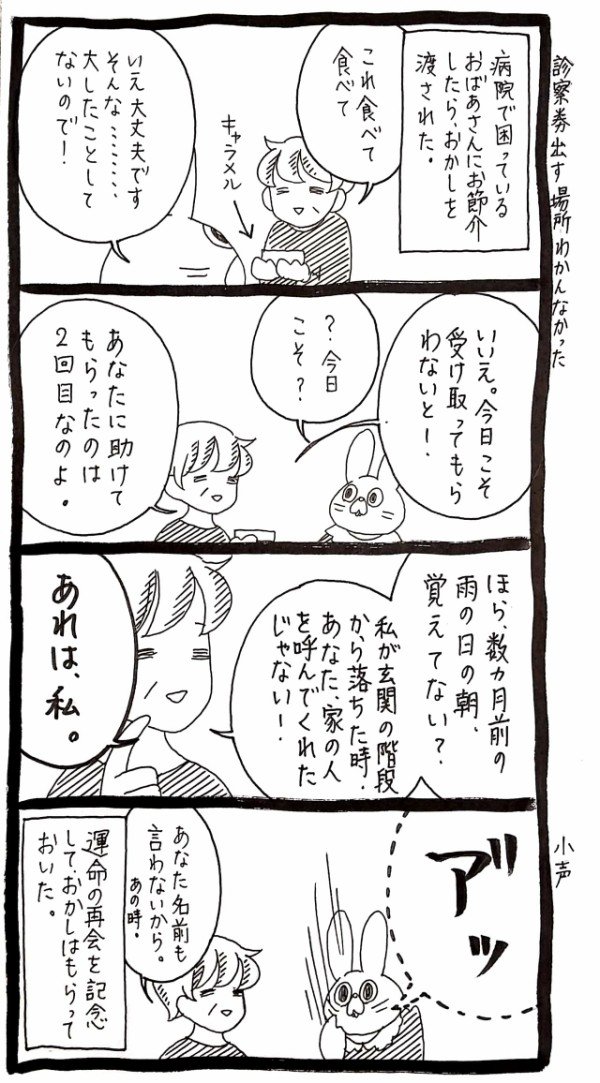 診察券出す場所わかんなかった
病院で困っている
おばあさんにお節介
したら、おかしを
渡された。
これ食べて
食べて
キャラメル
いえ大丈夫です
そんな………
大したことして
ないので！
いいえ。今日こそ
受け取ってもら
わないと！
？今日
こそ？
あなたに助けて
もらったのは
2回目なのよ。
ほら、数ヵ月前の
雨の日の朝、
覚えてない？
私が玄関の階段
から落ちた時、
あなた、家の人
を呼んでくれた
じゃない！
あれは、私。
小声
アッ
あなた名前も
言わないから。
あの時。
運命の再会を記念
して、おかしはもらって
おいた。